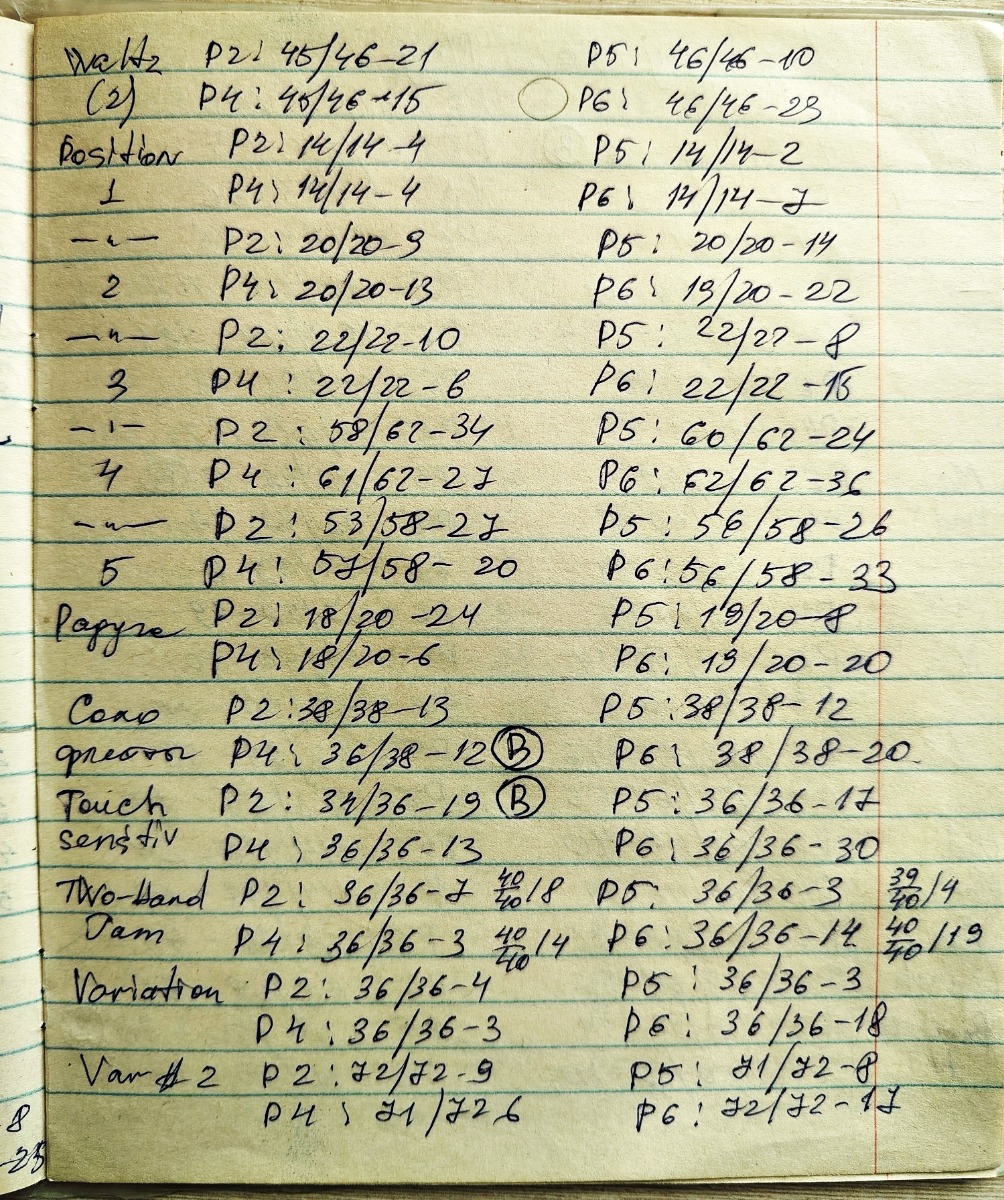 Waltz P2: 45/46-21 P5: 46/46-10
(2) P4: 45/46-15 P6: 46/46-23
Position P2: 14/14-4 P5: 14/14-2
1 P4: 14/14-4 P6: 14/14-7
—"— P2: 20/20-9 P5: 20/20-14
2 P4: 20/20-13 P6: 19/20-22
—"— P2: 22/22-10 P5: 22/22-8
3 P4: 22/22-6 P6: 22/22-15
—"— P2: 58/62-34 P5: 60/62-24
4 P4: 61/62-27 P6: 62/62-36
—"— P2: 53/58-27 P5: 56/58-26
5 P4: 57/58-20 P6: 56/58-33
Радуга P2: 18/20-24 P5: 19/20-8
P4: 18/20-6 P6: 19/20-20
Соло P2: 38/38-13 P5: 38/38-12
флейты P4: 36/38-12 B P6: 38/38-20
Touch P2: 34/36-19 B P5: 36/36-17
sensitiv P4: 36/36-13 P6: 36/36-30
Two-band P2: 36/36-7 40/40/8 P5: 36/36-3 39/40/4
Jam P4: 36/36-3 40/40/4 P6: 36/36-14 40/40/19
Variation P2: 36/36-4 P5: 36/36-3
P4: 36/36-3 P6: 36/36-18
Var # 2 P2: 72/72-9 P5: 71/72-8
P4: 71/72 6 P6: 72/72-17
8
-25